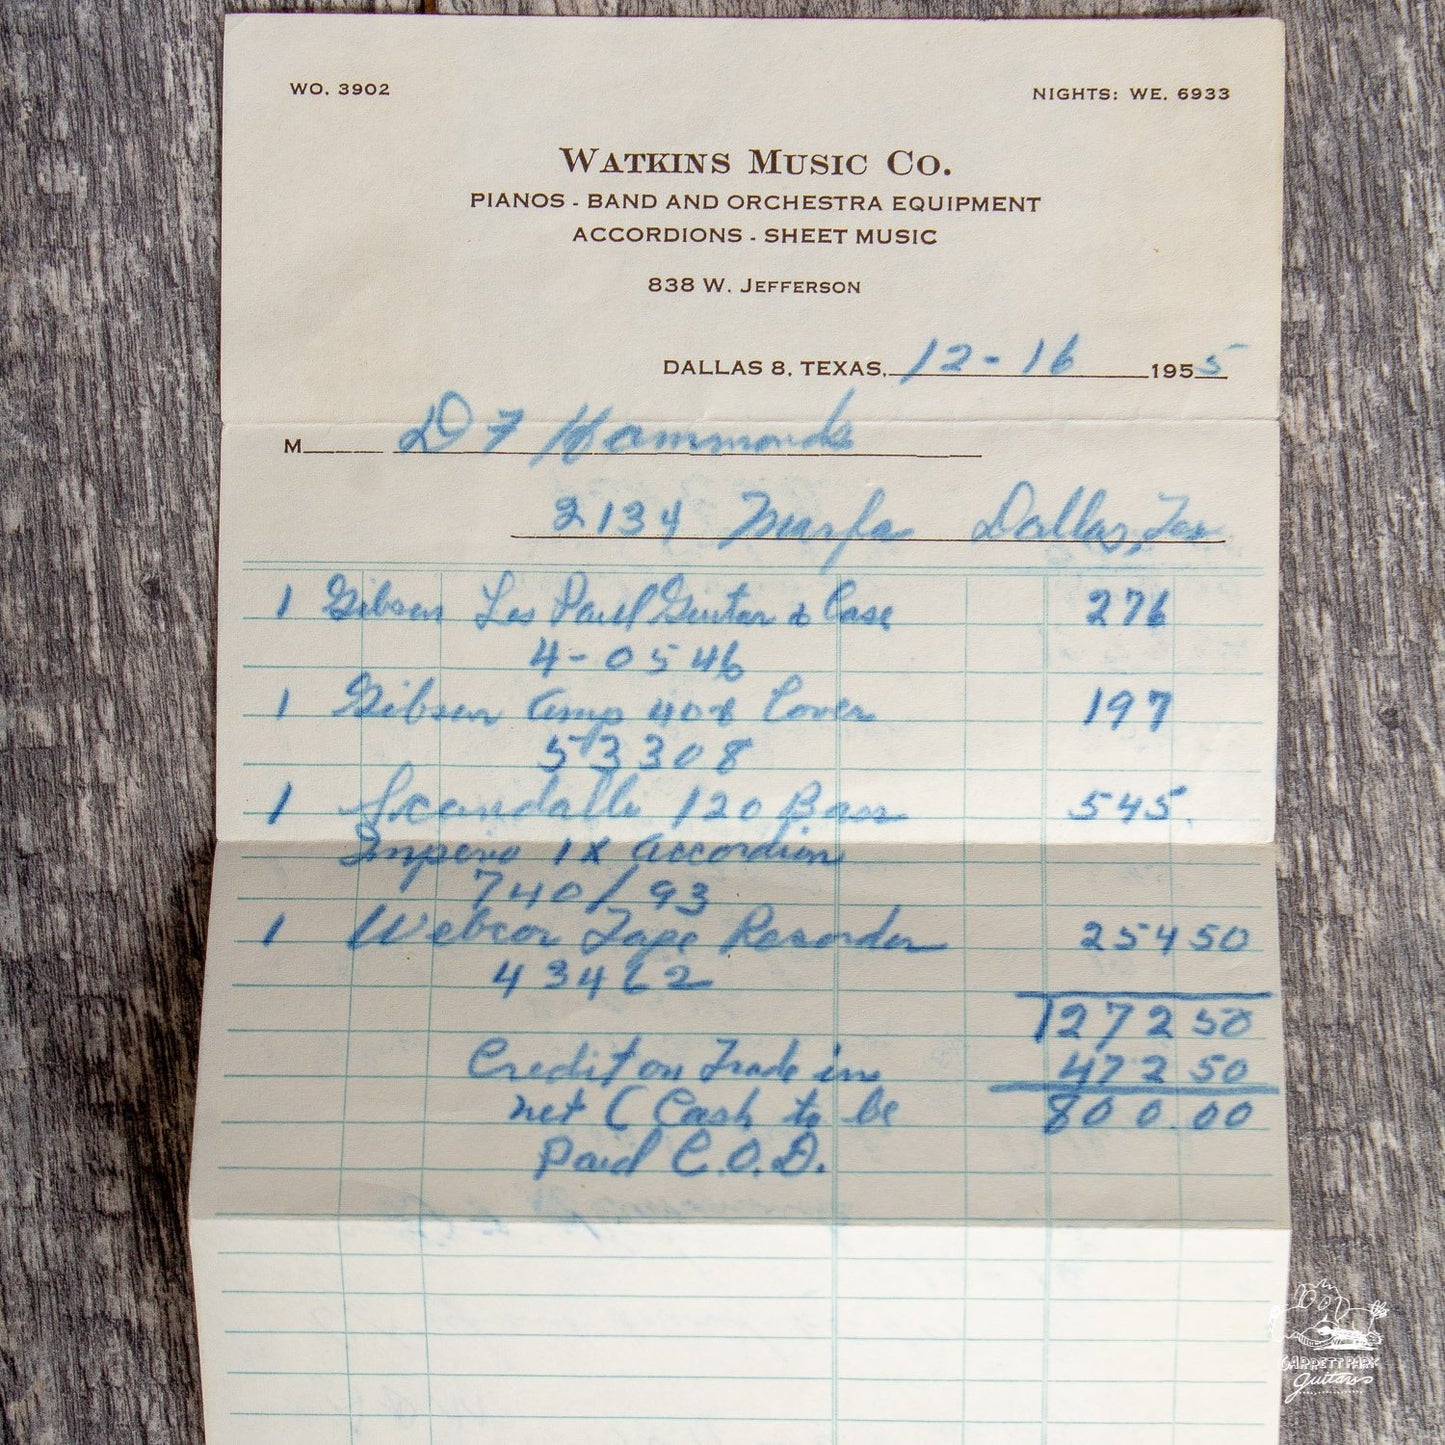 WO. 3902
NIGHTS: WE. 6933
WATKINS MUSIC CO.
PIANOS - BAND AND ORCHESTRA EQUIPMENT
ACCORDIONS - SHEET MUSIC
838 W. JEFFERSON
DALLAS 8, TEXAS, 12 - 16 1955
M D F Hammonds
2134 Marfa Dallas, Tex
1 Gibson Les Paul Guitar & Case 276
4-0546
1 Gibson Amp 40 & Cover 197
53308
1 Scandalli 120 Bass 545.
Impero 1X Accordion
740/93
1 Webcor Tape Recorder 254 50
1272 50
Credit on Trade in 472 50
net ( Cash to be 800.00
Paid C.O.D.
GARRETT PARK
guitars